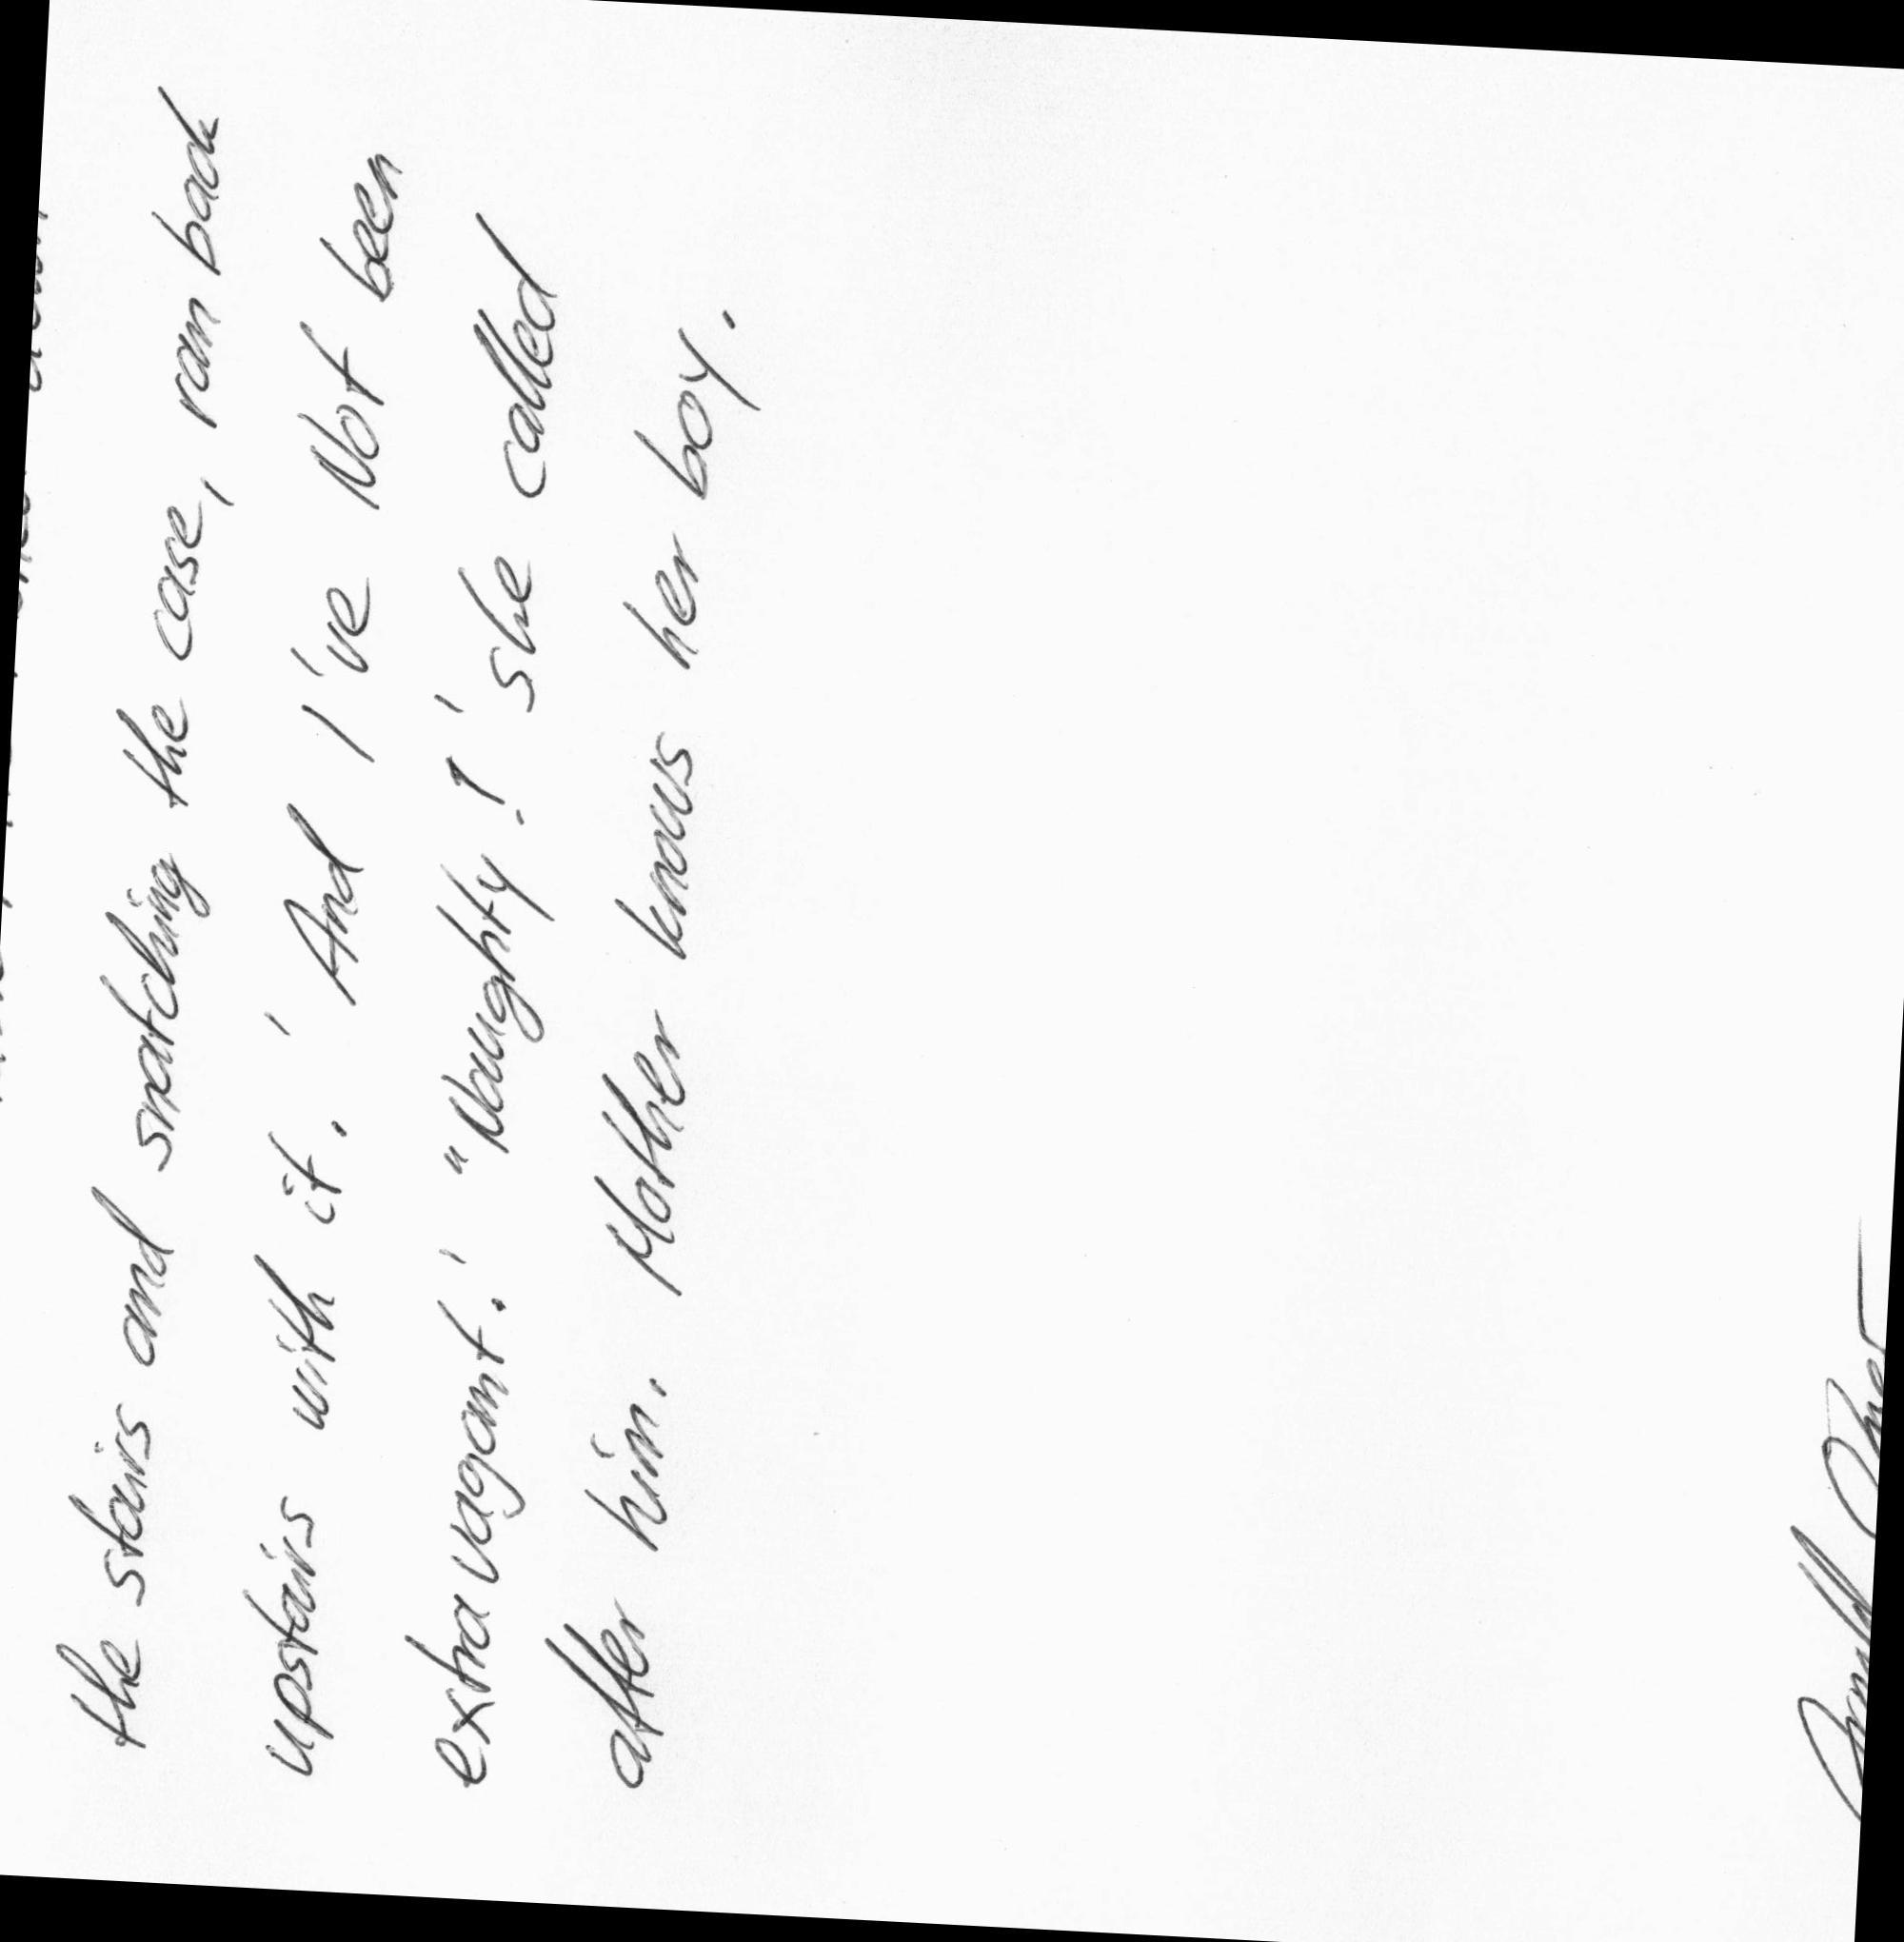 the stairs and snatching the case, ran back
upstairs with it. ' And I've Not been
extravagant.' "Naughty!' she called
after him. Mother knows her boy.